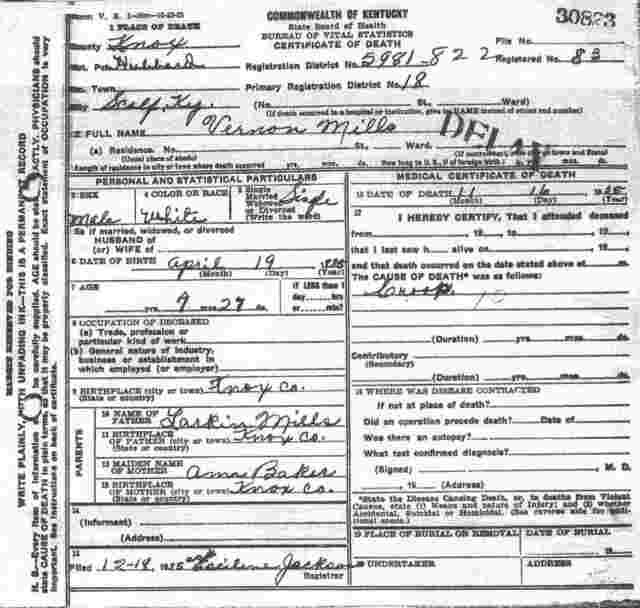 Form V. S. 1-
COMMONWEALTH OF KENTUCKY
State Board of Health
BUREAU OF VITAL STATISTICS
CERTIFICATE OF DEATH
30823
1 PLACE OF DEATH
County Knox
Vot. Pct. Hubbard
Inc. Town
City Scalf, Ky.
File No.
Registration District No. 5981-822 Registered No. 83
Primary Registration District No. 18
(No. St., Ward)
(If death occurred in a hospital or institution, give its NAME instead of street and number)
2 FULL NAME Vernon Mills
DELA
(a) Residence. No. St., Ward.
(Usual place of abode)
Length of residence in city or town where death occurred yrs. mos. ds. How long in U. S., if of foreign birth? yrs. mos. ds.
PERSONAL AND STATISTICAL PARTICULARS
3 SEX
Male
4 COLOR OR RACE
White
5 Single
Married
Widowed
or Divorced
(Write the word)
Single
5a If married, widowed, or divorced
HUSBAND of
(or) WIFE of
6 DATE OF BIRTH April 19
(Month) (Day) (Year)
7 AGE
yrs. 9 mos. 27 ds.
If LESS than 1
day hrs.
or min.
8 OCCUPATION OF DECEASED
(a) Trade, profession or
particular kind of work
(b) General nature of Industry,
business or establishment in
which employed (or employer)
9 BIRTHPLACE (city or town) Knox Co.
(State or country)
PARENTS
10 NAME OF
FATHER Laskin Mills
11 BIRTHPLACE
OF FATHER (city or town) Knox Co.
(State or country)
12 MAIDEN NAME
OF MOTHER Ama Baker
13 BIRTHPLACE
OF MOTHER (city or town) Knox Co.
(State or country)
14
(Informant)
(Address)
15
Filed 12-18, 1925 Jackson
Registrar
MEDICAL CERTIFICATE OF DEATH
16 DATE OF DEATH 11 16 1925
(Month) (Day) (Year)
17
I HEREBY CERTIFY, That I attended deceased
from , 19 , to , 19 ,
that I last saw h alive on , 19 ,
and that death occurred on the date stated above at m.
The CAUSE OF DEATH* was as follows:
Croop
(Duration) yrs. mos. ds.
Contributory
(Secondary)
(Duration) yrs. mos. ds.
18 WHERE WAS DISEASE CONTRACTED
If not at place of death?
Did an operation precede death? Date of
Was there an autopsy?
What test confirmed diagnosis?
(Signed) , M. D.
, 19 (Address)
*State the Disease Causing Death, or, in deaths from Violent
Causes, state (1) Means and nature of Injury; and (2) whether
Accidental, Suicidal or Homicidal. (See reverse side for additional space.)
19 PLACE OF BURIAL OR REMOVAL
DATE OF BURIAL
19
20 UNDERTAKER
ADDRESS
MARGIN RESERVED FOR BINDING
WRITE PLAINLY, WITH UNFADING INK—THIS IS A PERMANENT RECORD
N. B.—Every Item of Information should be carefully supplied. AGE should be stated EXACTLY. PHYSICIANS should
state CAUSE OF DEATH in plain terms, so that it may be properly classified. Exact statement of OCCUPATION is very
important. See instructions on back of certificate.